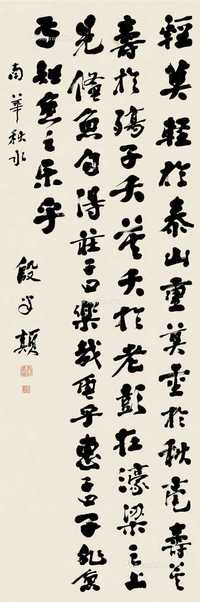 轻莫轻於泰山重莫重於秋毫寿莫
寿於殇子夭莫夭於老彭在濠梁之上
見儵魚自得莊子曰樂哉魚乎惠子曰子非魚
焉知魚之乐乎
南華秋水
殷子頴